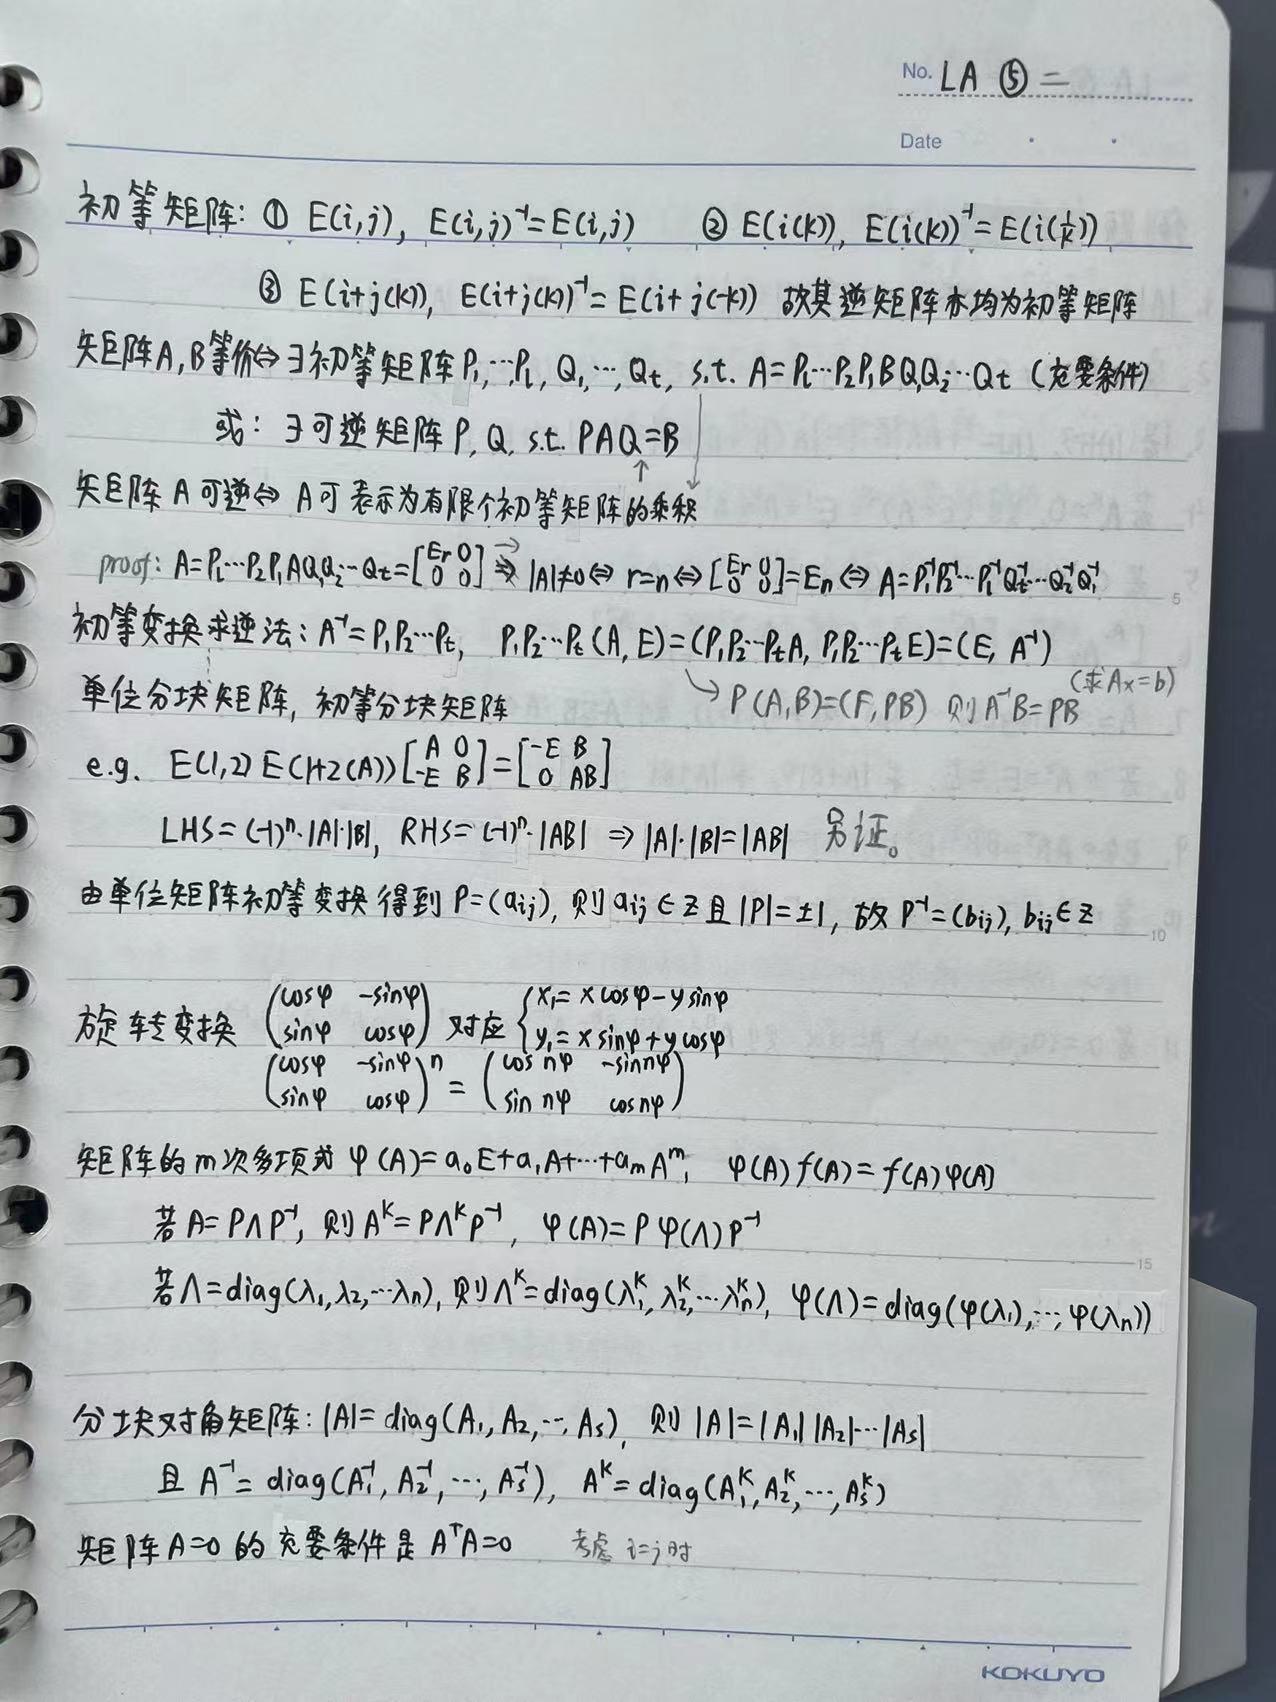 No. LA ⑤ 二
Date
初等矩阵: ① E(i,j), E(i,j)⁻¹=E(i,j) ② E(i(k)), E(i(k))⁻¹=E(i(1/k))
③ E(i+j(k)), E(i+j(k))⁻¹=E(i+j(-k)) 故其逆矩阵亦均为初等矩阵
矩阵A,B等价⇔∃初等矩阵P₁,…Pₗ, Q₁,…,Qₜ, s.t. A=Pₗ…P₂P₁BQ₁Q₂…Qₜ (充要条件)
或: ∃可逆矩阵P,Q, s.t. PAQ=B
矩阵A可逆⇔A可表示为有限个初等矩阵的乘积
proof: A=Pₗ…P₂P₁AQ₁Q₂…Qₜ=[Er 0; 0 0] ⇒ |A|≠0⇔r=n⇔[Er 0; 0 0]=En⇔A=P₁⁻¹P₂⁻¹…Pₗ⁻¹Qₜ⁻¹…Q₂⁻¹Q₁⁻¹
5
初等变换求逆法: A⁻¹=P₁P₂…Pₜ, P₁P₂…Pₜ(A, E)=(P₁P₂…PₜA, P₁P₂…PₜE)=(E, A⁻¹)
(求Ax=b)
单位分块矩阵, 初等分块矩阵 ↳ P(A,B)=(F,PB) 则A⁻¹B=PB
e.g. E(1,2) E(1+2(A)) [A 0; -E B]=[-E B; 0 AB]
LHS=(-1)ⁿ·|A|·|B|, RHS=(-1)ⁿ·|AB| ⇒ |A|·|B|=|AB| 另证。
由单位矩阵初等变换得到P=(aij), 则aij∈Z且|P|=±1, 故P⁻¹=(bij), bij∈Z
10
旋转变换 (cosφ -sinφ; sinφ cosφ) 对应 {x₁=xcosφ-ysinφ; y₁=xsinφ+ycosφ
(cosφ -sinφ; sinφ cosφ)ⁿ = (cos nφ -sin nφ; sin nφ cos nφ)
矩阵的m次多项式 φ(A)=a₀E+a₁A+…+aₘAᵐ, φ(A)f(A)=f(A)φ(A)
若A=PΛP⁻¹, 则Aᵏ=PΛᵏP⁻¹, φ(A)=Pφ(Λ)P⁻¹
15
若Λ=diag(λ₁,λ₂,…λₙ), 则Λᵏ=diag(λ₁ᵏ,λ₂ᵏ,…λₙᵏ), φ(Λ)=diag(φ(λ₁),…,φ(λₙ))
分块对角矩阵: |A|=diag(A₁,A₂,…,Aₛ), 则|A|=|A₁||A₂|…|Aₛ|
且A⁻¹=diag(A₁⁻¹,A₂⁻¹,…,Aₛ⁻¹), Aᵏ=diag(A₁ᵏ,A₂ᵏ,…,Aₛᵏ)
矩阵A=0的充要条件是AᵀA=0 考虑i=j时
KOKUYO